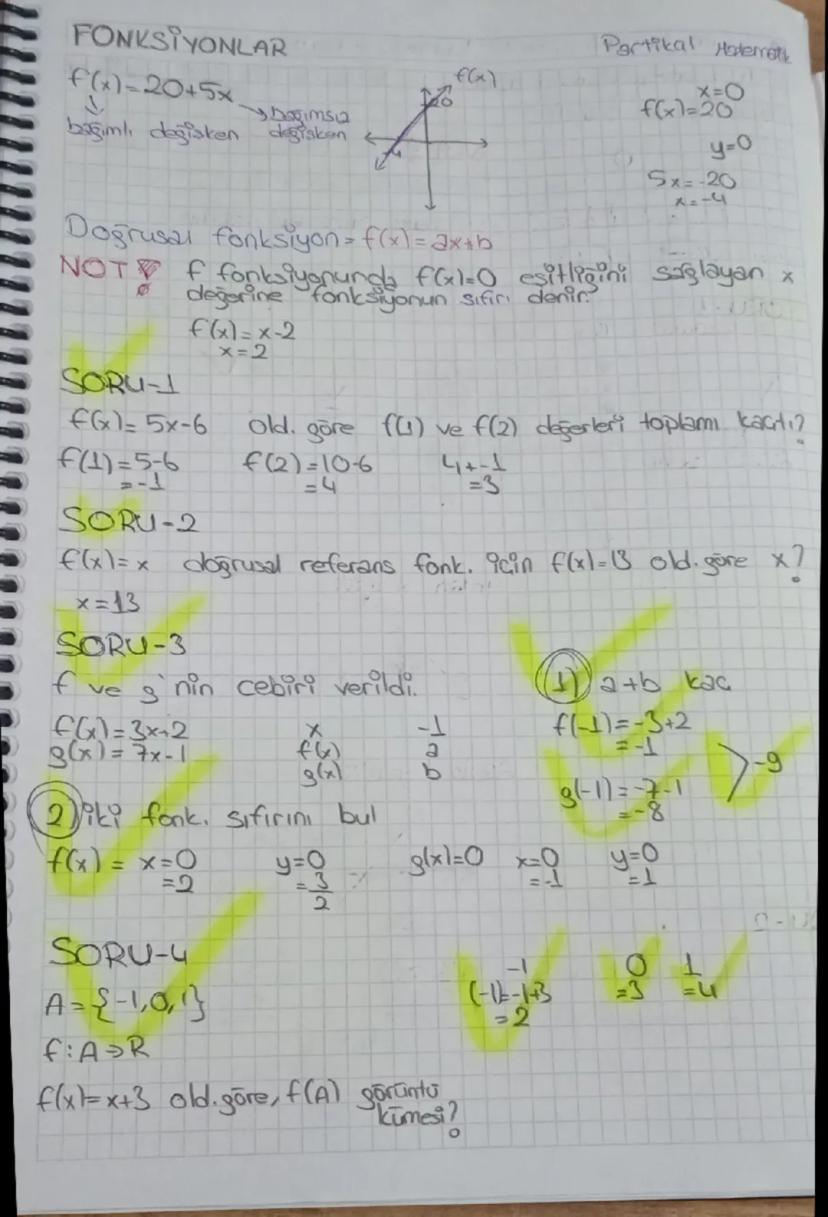 FONKSİYONLAR
Partikal Matematik
f(x)=20+5x
bağımlı değişken
bağımsız
değişken
f(x)
20
-4
x=0
f(x)=20
y=0
5x=-20
x=-4
Doğrusal fonksiyon= f(x)=ax+b
NOT! f fonksiyonunda f(x)=0 eşitliğini sağlayan x
değerine fonksiyonun sıfırı denir.
f(x)=x-2
x=2
SORU-1
f(x)=5x-6 old. göre f(1) ve f(2) değerleri toplamı kaçtı?
f(1)=5-6 f(2)=10-6 4+-1
=-1 =4 =3
SORU-2
f(x)=x doğrusal referans fonk. için f(x)=13 old. göre x?
x=13
SORU-3
f ve g'nin cebiri verildi.
f(x)=3x+2 x -1
g(x)=7x-1 f(x) a
g(x) b
1) a+b kaç
f(-1)=-3+2
=-1
g(-1)=-7-1
=-8
-9
2) iki fonk. sıfırını bul
f(x)= x=0 y=0 g(x)=0 x=0 y=0
=2 =3/2 =-1 =1
SORU-4
A={-1,0,1}
f:A→R
f(x)=x+3 old. göre, f(A) görüntü
kümesi?
-1 0 1
(-1)=-1+3 =3 =4
=2